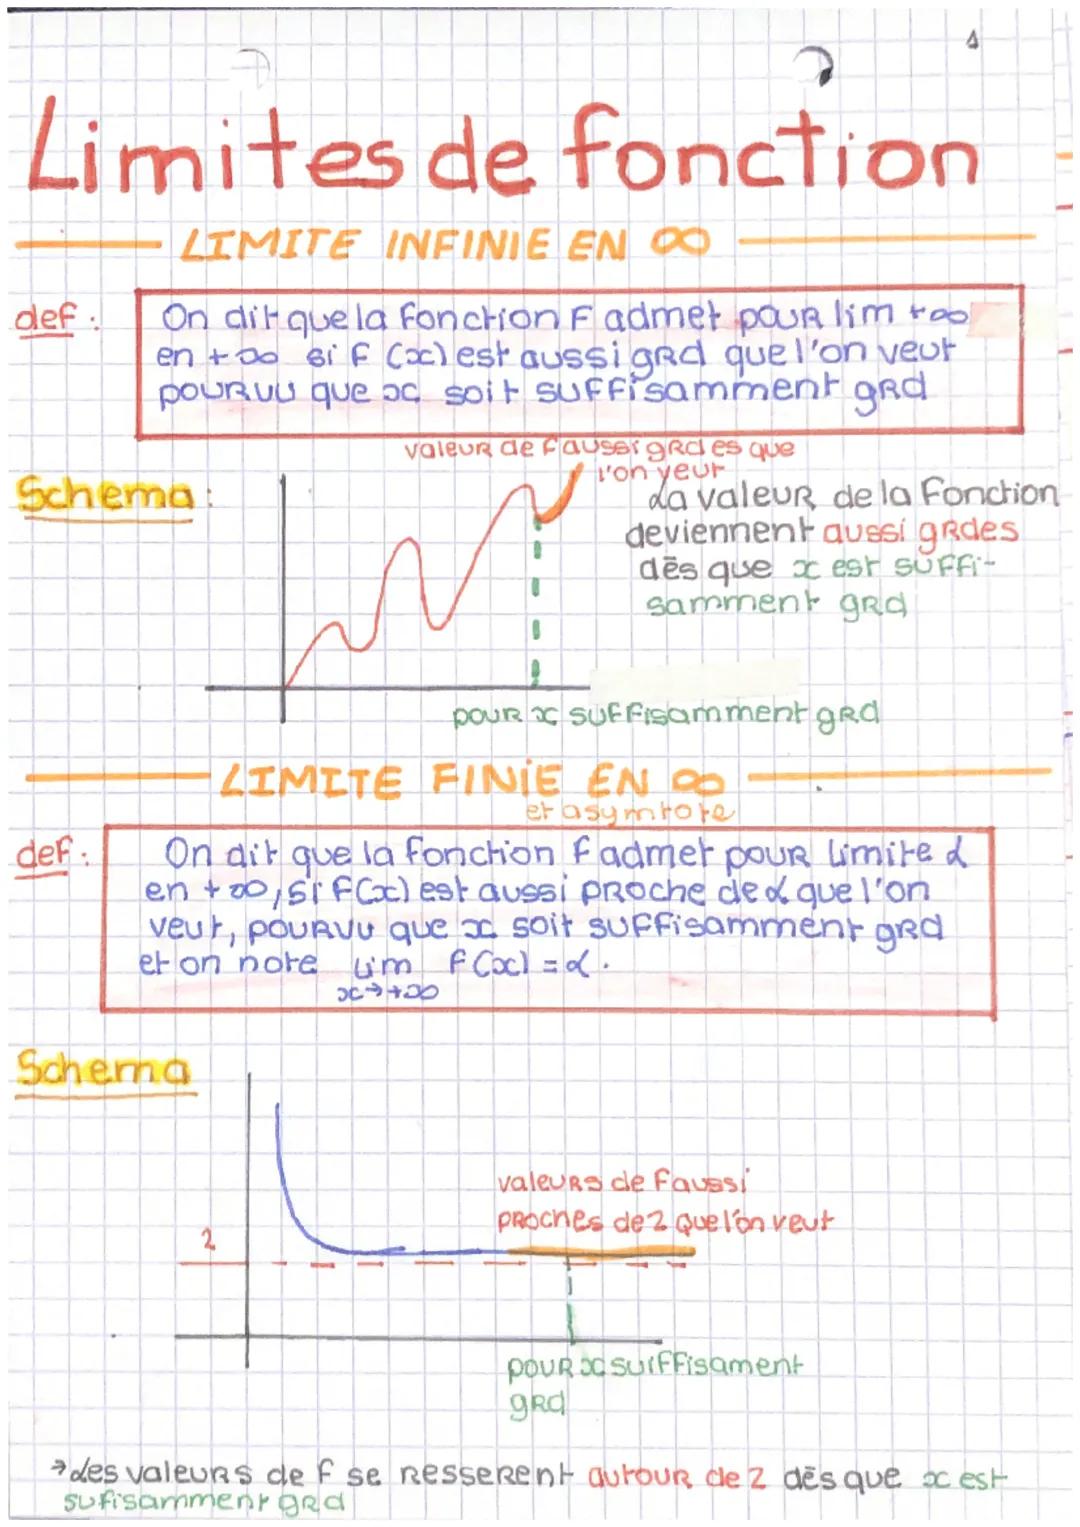 1
Limites de fonction
LIMITE INFINIE EN ∞
def :
On dit que la fonction F admet pour lim +∞
en +∞ si f (x) est aussi grd que l'on veut
pourvu que x soit suffisamment grd
valeur de f aussi grdes que
l'on veut
Schema :
La valeur de la fonction
deviennent aussi grdes
dès que x est suffi-
samment grd
pour x suffisamment grd
LIMITE FINIE EN ∞
et asymtote
def :
On dit que la fonction f admet pour limite α
en +∞, si f(x) est aussi proche de α que l'on
veut, pourvu que x soit suffisamment grd
et on note lim f(x) = α.
x→+∞
Schema
valeurs de f aussi
proches de 2 que l'on veut
2
pour x suiffisament
grd
→ Les valeurs de f se resserent autour de 2 dès que x est
sufisamment grd